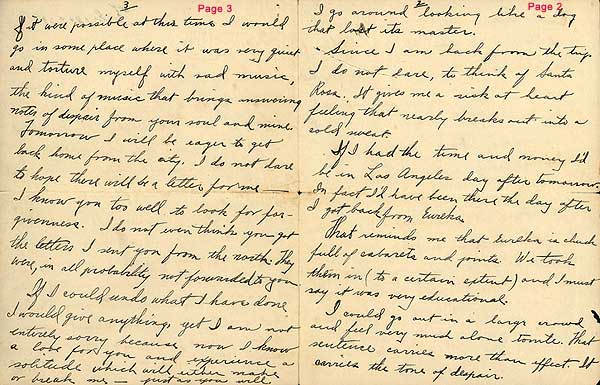 Page 2
2
I go around looking like a dog
that lost its master.
Since I am back from the trip
I do not dare, to think of Santa
Rosa. It gives me a sick at heart
feeling that nearly breaks out into a
cold sweat.
If I had the time and money I'd
be in Los Angeles day after tomorrow.
In fact I'd have been there the day after
I got back from Eureka.
That reminds me that Eureka is chuck
full of cabarets and joints. We took
them in (to a certain extent) and I must
say it was very educational.
I could go out in a large crowd
and feel very much alone tonite. That
sentence carries more than effect. It
carries the tone of despair.
Page 3
3
If it were possible at this time I would
go in some place where it was very quiet
and torture myself with sad music,
the kind of music that brings answering
notes of despair from your soul and mine.
Tomorrow I will be eager to get
back home from the city. I do not dare
to hope there will be a letter for me
I know you too well to look for for-
givenness. I do not even think you got
the letters I sent you from the north. They
were, in all probability, not forwarded to you
If I could undo what I have done
I would give anything, yet I am not
entirely sorry because now I know
a love for you and experience a
solitude which will either make
or break me — just as you will